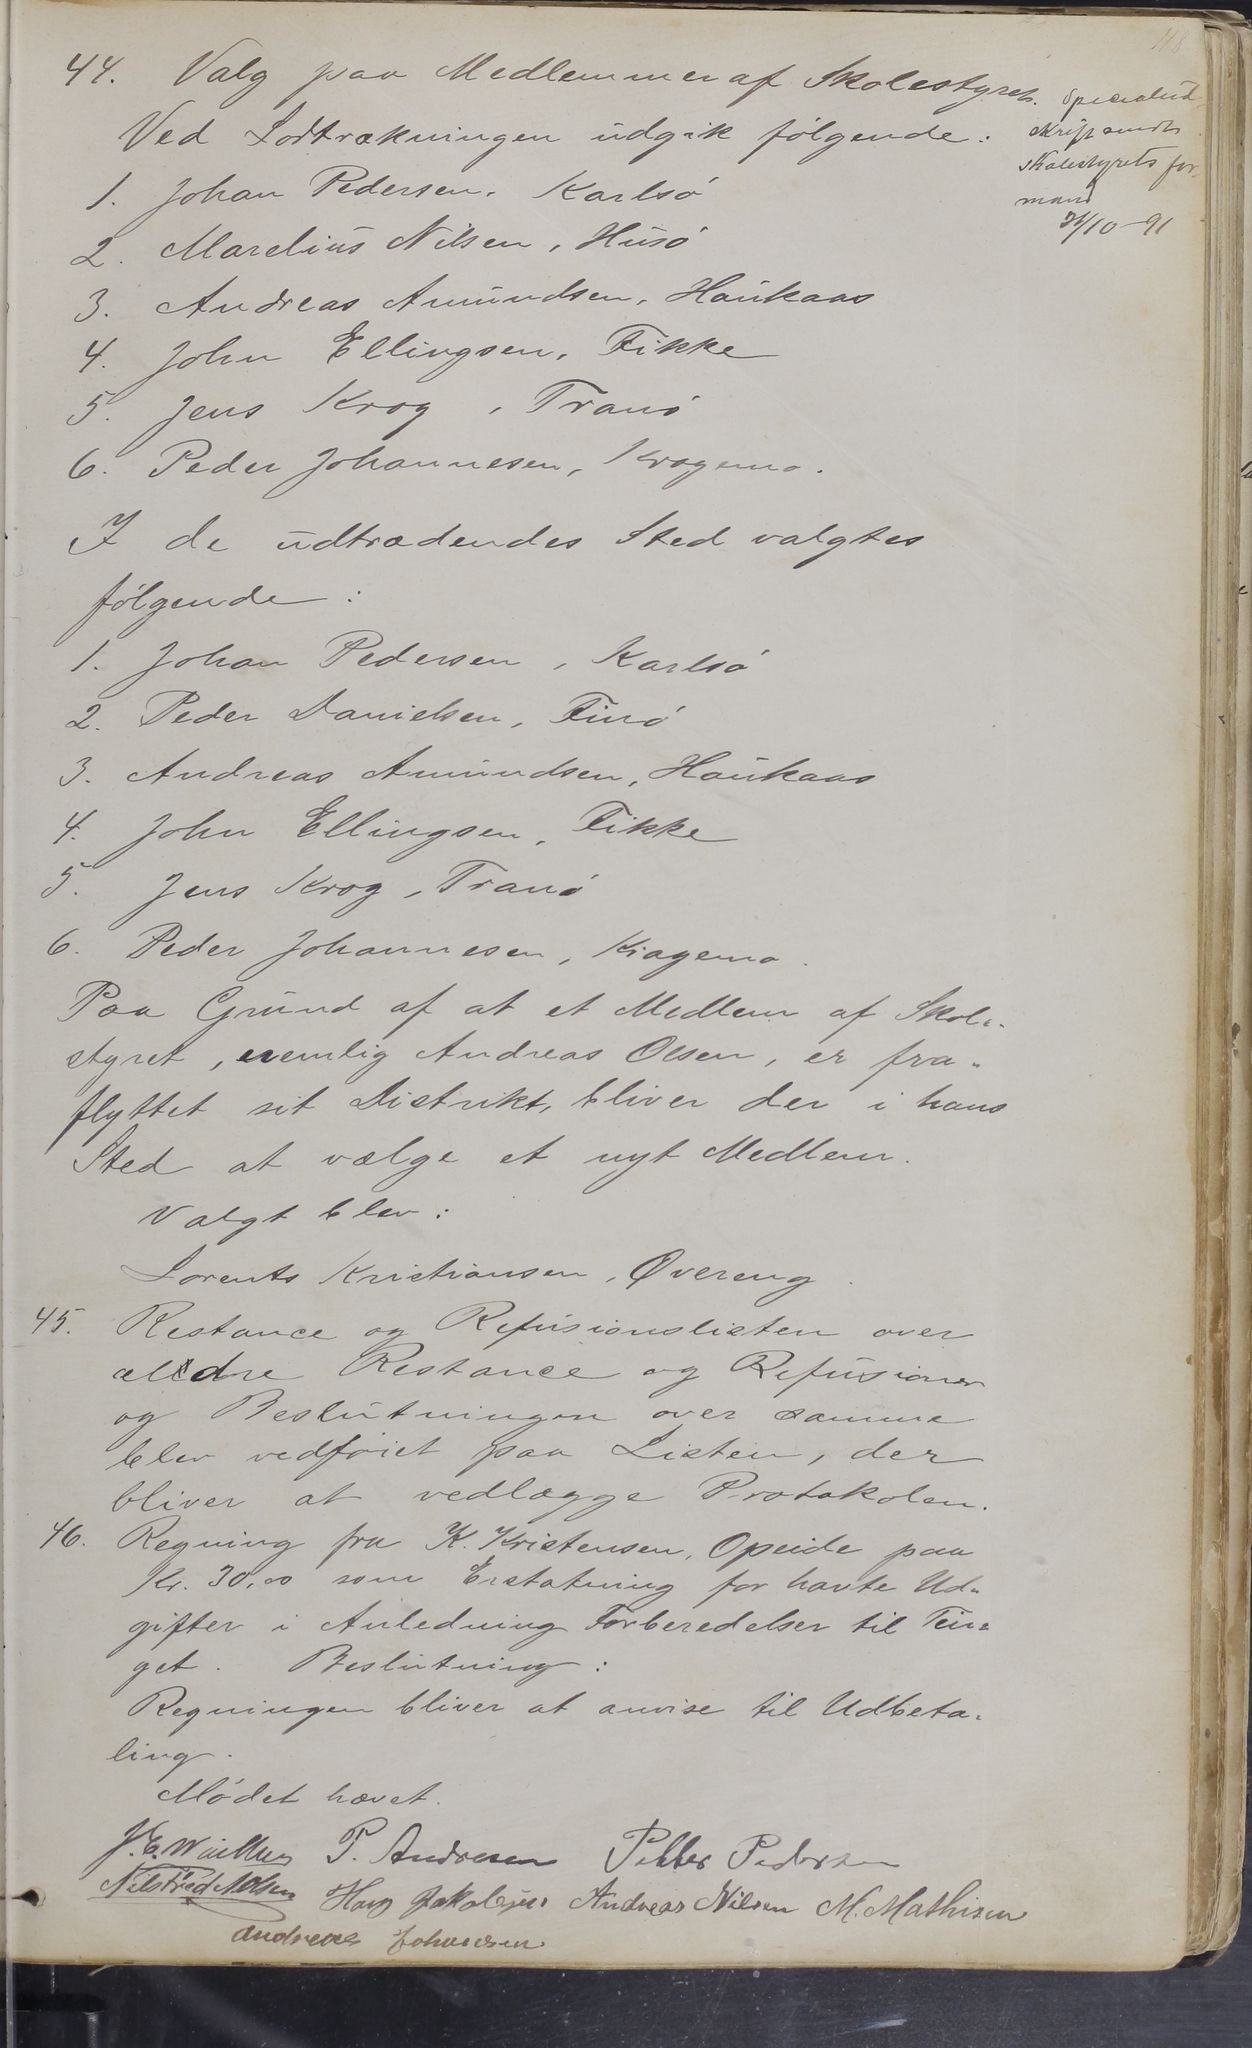 44. Valg paa Medlemmer af Skolestyret.
Ved Lodtrækningen udgik følgende:
1. Johan Pedersen, Karlsö
2. Marelius Nilsen, Husö
3. Andreas Amundsen, Haukaas
4. John Ellingsen, Fikke
5. Jens Krog, Tranö
6. Peder Johannesen, Kragemo.
I de udtrædendes Sted valgtes
følgende:
1. Johan Pedersen, Karlsö
2. Peder Danielsen, Finö
3. Andreas Amundsen, Haukaas
4. John Ellingsen, Fikke
5. Jens Krog, Tranö
6. Peder Johannesen, Kragemo.
Paa Grund af at et Medlem af Skole-
styret, nemlig Andreas Olsen, er fra-
flyttet sit Distrikt, bliver der i hans
Sted at vælge et nyt Medlem.
Valgt blev:
Lorents Kristiansen, Øvereng.
45. Restance og Refusionslisten over
ældre Restance og Refusioner
og Beslutningen over samme
blev vedföiet paa Listen, der
bliver at vedlægge Protokolen.
46. Regning fra K. Kristensen, Opeide paa
Kr. 30,00 som Erstatning for havte Ud-
gifter i Anledning Forberedelser til Tin-
get. Beslutning:
Regningen bliver at anvise til Udbeta-
ling.
Mödet hævet.
P. Andresen Petter Pedersen
Hans Jakobsen Andreas Nilsen M. Mathisen
Andreas Johansen
Specialud-
skrift sendt
Skolestyrets for-
mand
/10-91
118